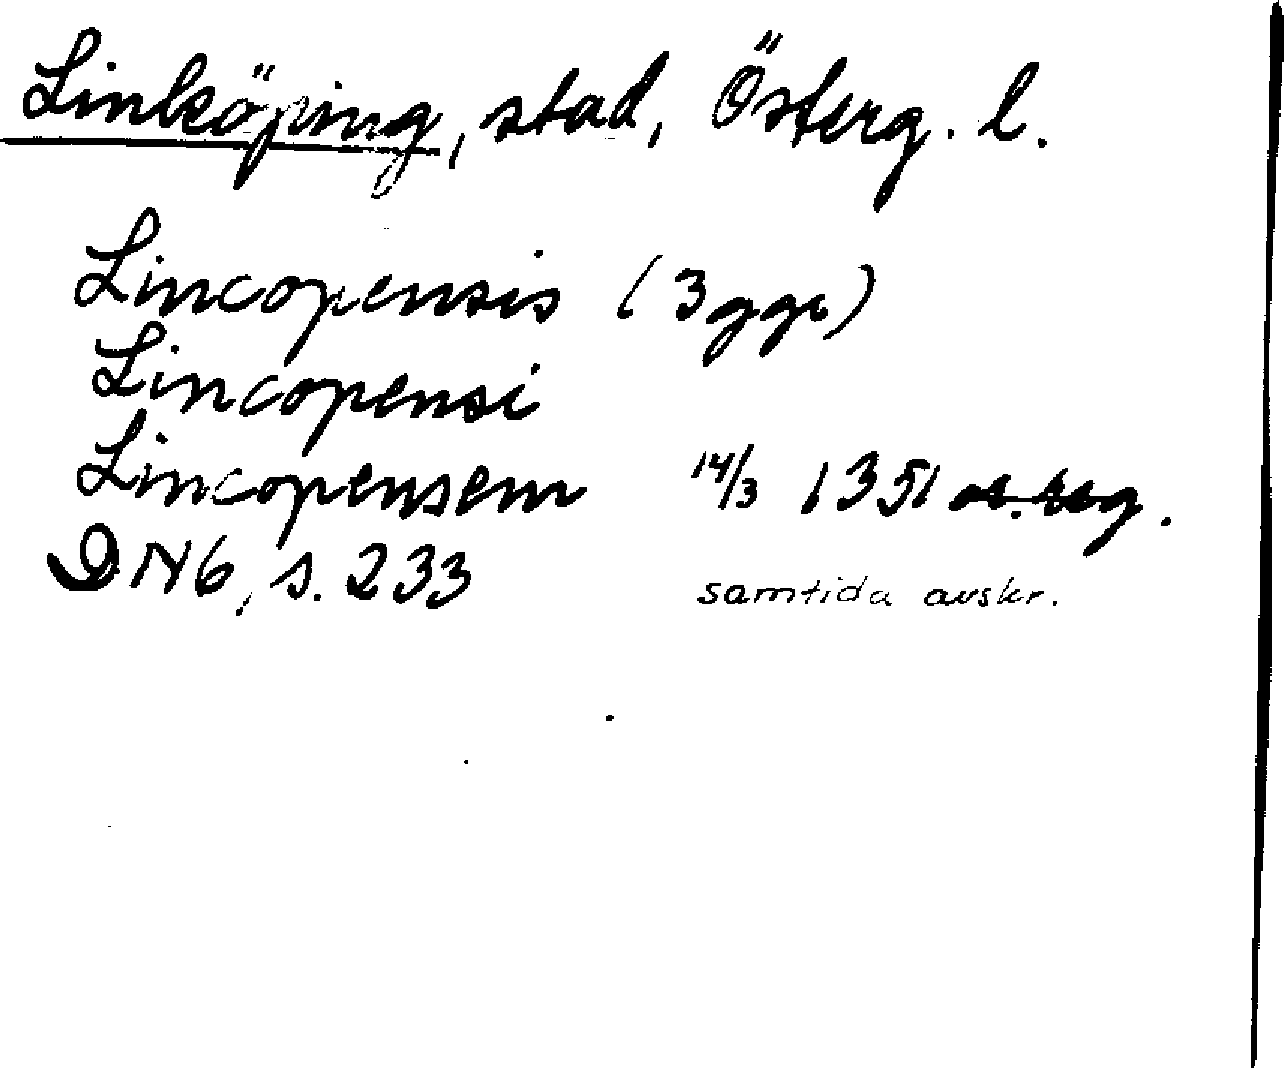 Linköping, stad, Österg. l.
Lincopensis (3 ggr)
Lincopensi
Lincopensem 14/3 1351 or. reg.
DN6, s. 233 samtida avskr.